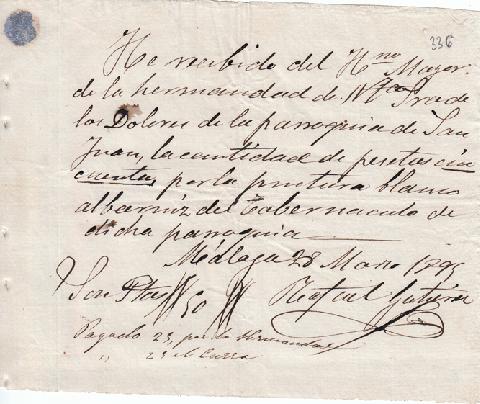 336
He recibido del Hno Mayor
de la hermandad de Ntra Sra de
los Dolores de la parroquia de San
Juan, la cantidad de pesetas cin
cuenta, por la pintura blanco
al barniz del Tabernaculo de
dicha parroquia
Málaga 28 Marzo
Son Ptas 50 Rafael Gutierrez
Pagado 25, por la Hermandad
" 25 el Curra